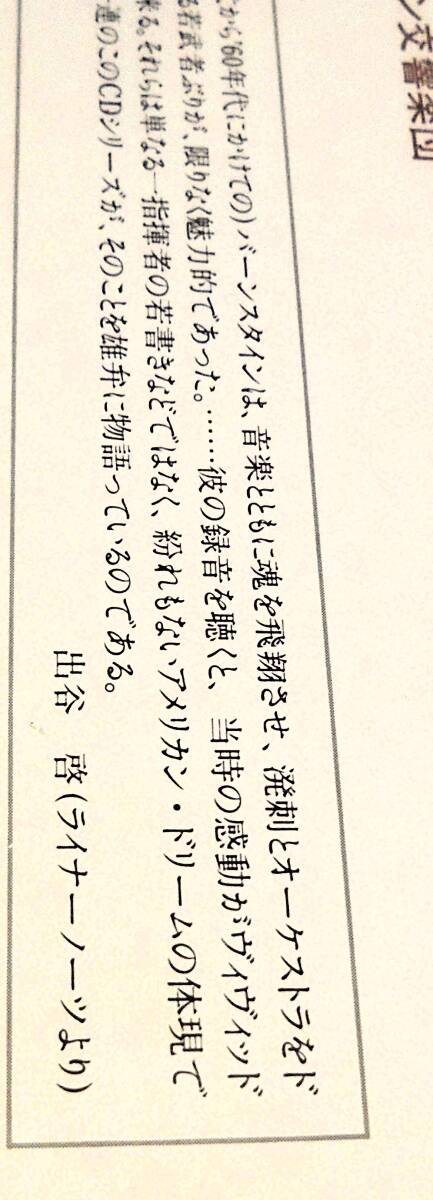 ン交響楽団
から'60年代にかけての)バーンスタインは、音楽とともに魂を飛翔させ、潑剌とオーケストラをド
る若武者ぶりが、限りなく魅力的であった。……彼の録音を聴くと、当時の感動がヴィヴィッド
来る。それらは単なる一指揮者の若書きなどではなく、紛れもないアメリカン・ドリームの体現で
連のこのCDシリーズが、そのことを雄弁に物語っているのである。
出谷 啓(ライナーノーツより)